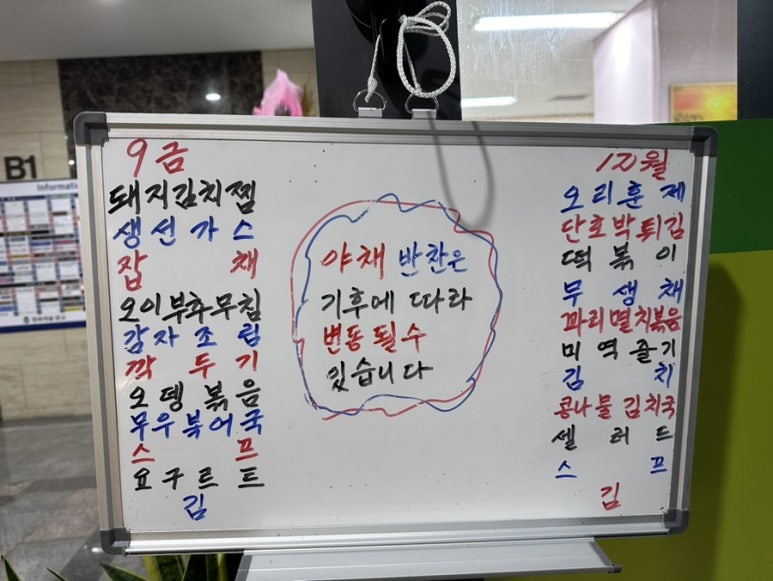 B1
Information
9금
돼지김치찜
생선가스
잡채
오이부추무침
감자조림
깍두기
오뎅볶음
무우북어국
스프
요구르트
김
야채 반찬은
기후에 따라
변동될수
있습니다
12월
오리훈제
단호박튀김
떡볶이
무생채
꽈리멸치볶음
미역줄기
김치
콩나물김치국
샐러드
스프
김